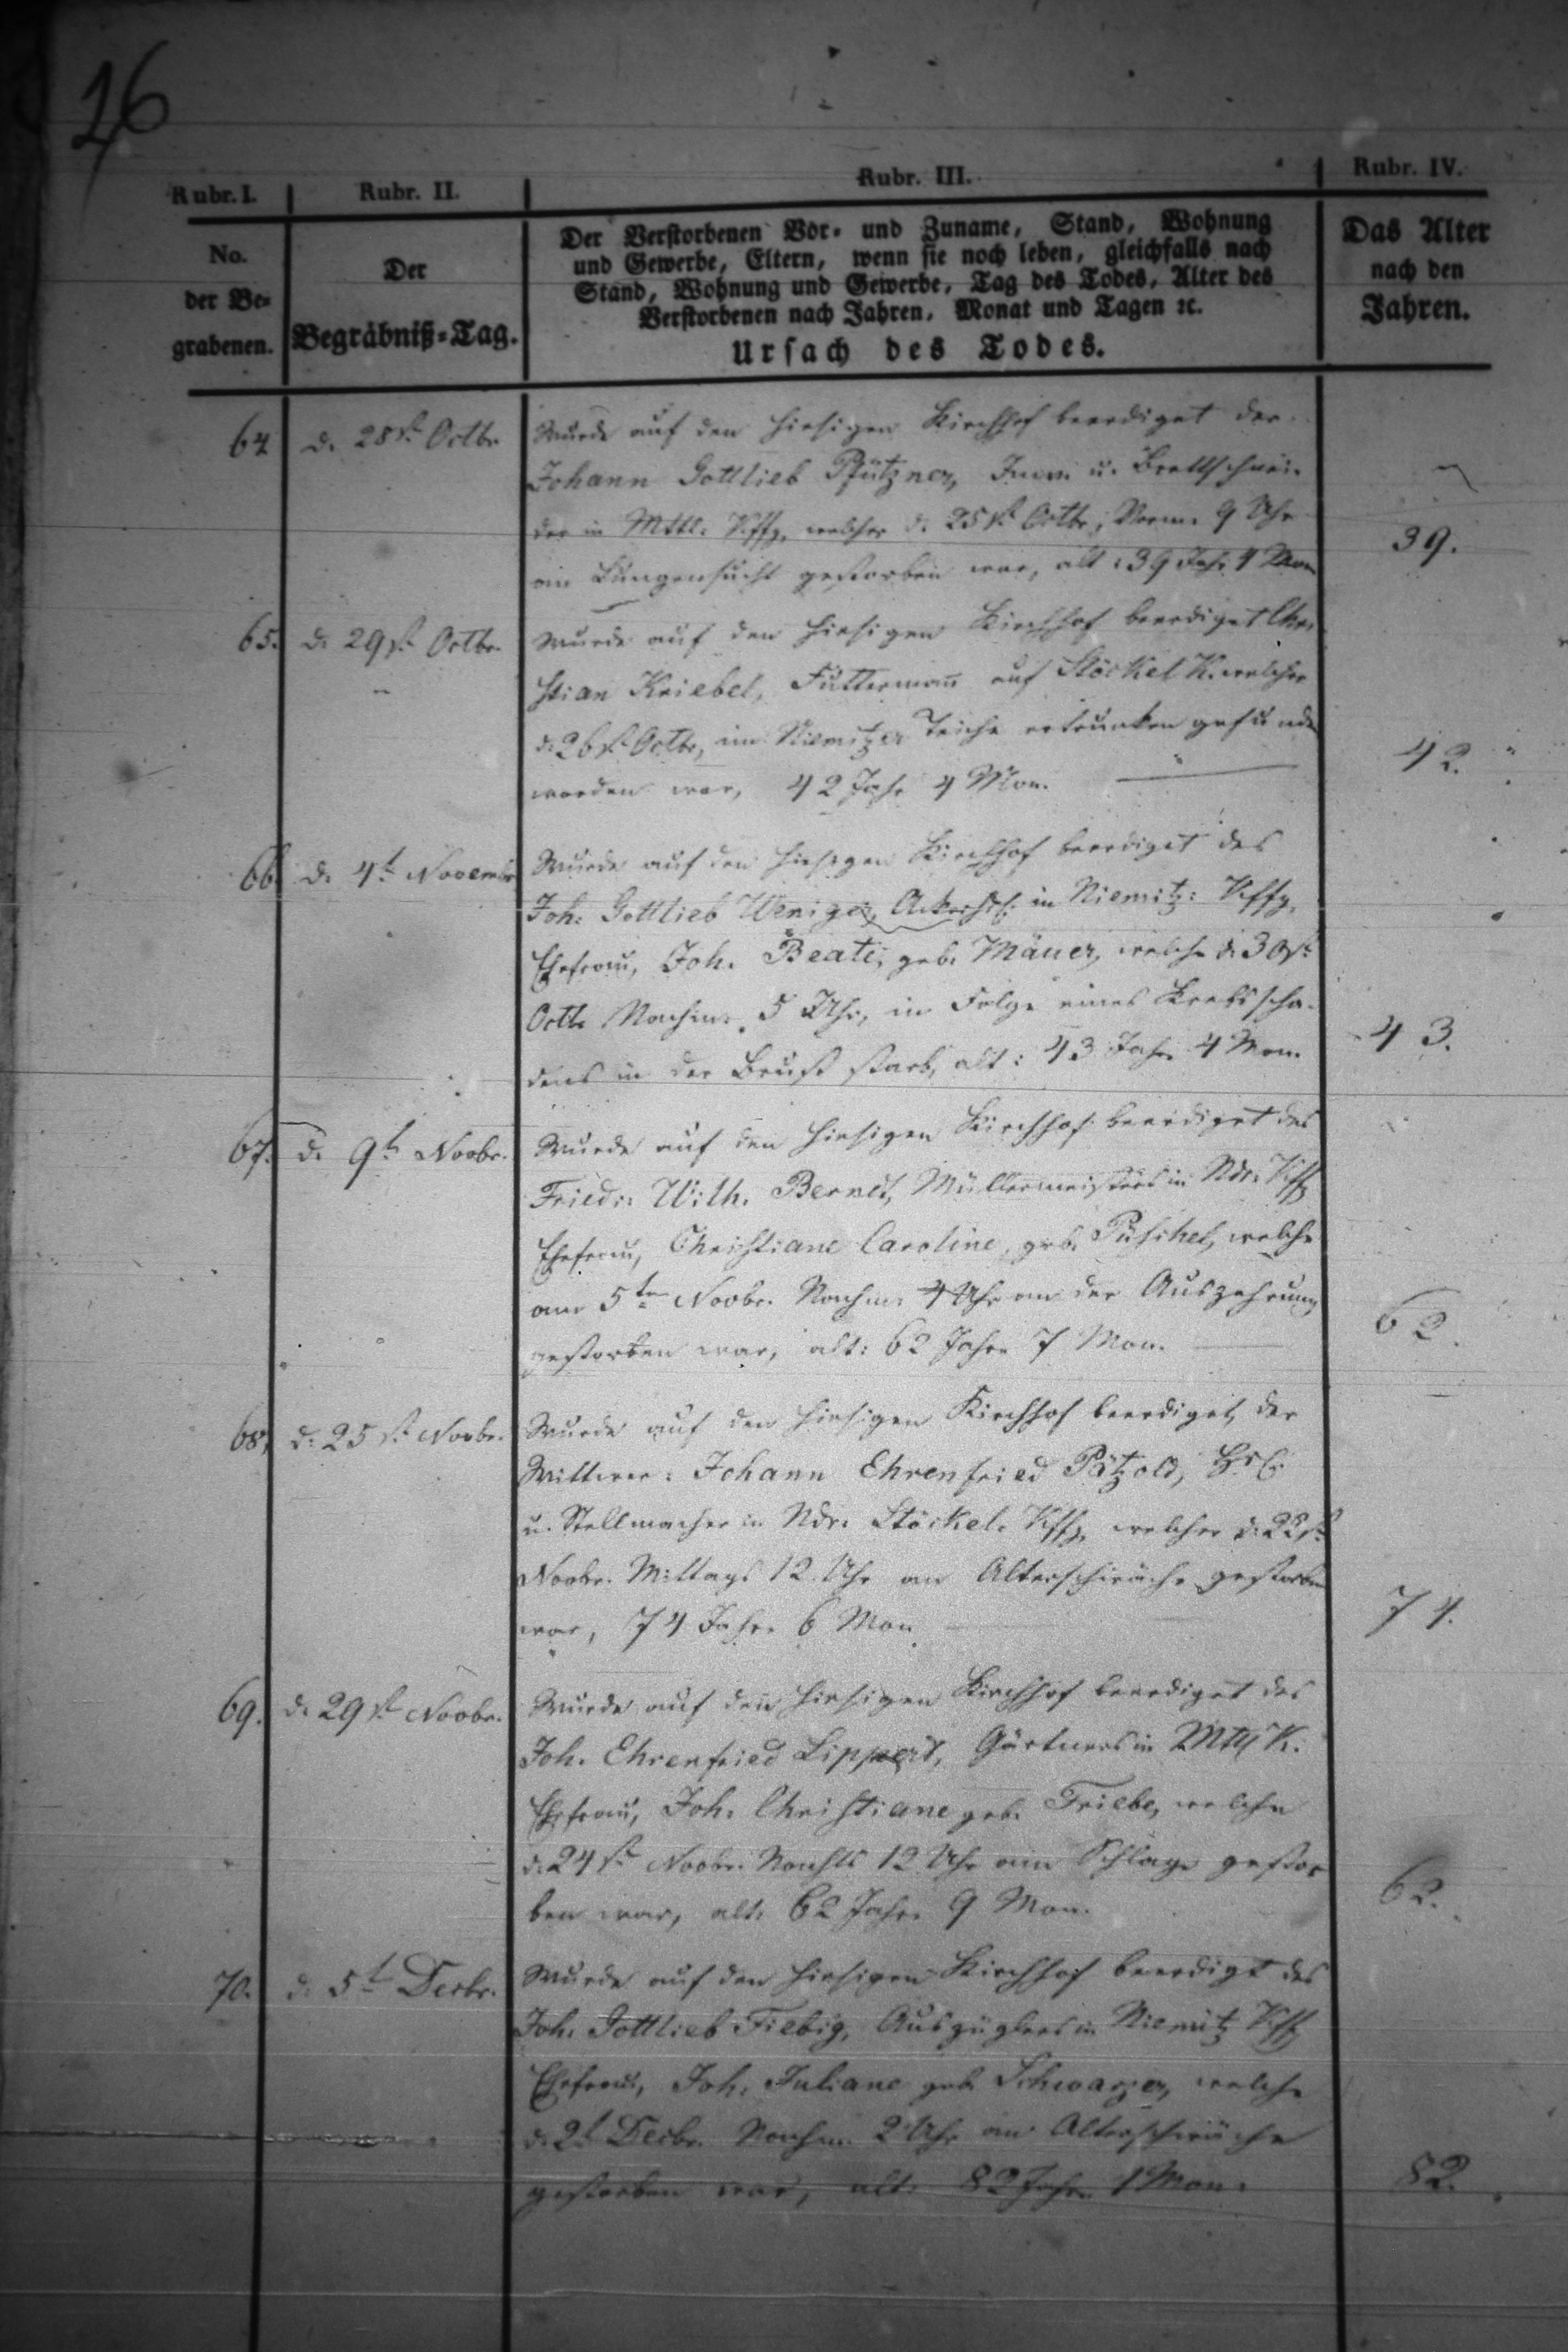 26
Rubr. I. Rubr. II. Rubr. III. Rubr. IV.
No.
der Be-
grabenen.
Der
Begräbniß-Tag.
Der Verstorbenen Vor- und Zuname, Stand, Wohnung
und Gewerbe, Eltern, wenn sie noch leben, gleichfalls nach
Stand, Wohnung und Gewerbe, Tag des Todes, Alter des
Verstorbenen nach Jahren, Monat und Tagen ꝛc.
Ursach des Todes.
Das Alter
nach den
Jahren.
64 d. 28st. Octbr. Wurde auf den hiesigen Kirchhof beerdiget der
Johann Gottlieb Pfützner, Inw. u. Brettschnei-
der in Mttl. Kffg, welcher d. 25st. Octbr, Vorm. 9 Uhr
an Lungensucht gestorben war, alt: 39 Jahr 4 Mon
39.
65. d. 29st. Octbr. Wurde auf den hiesigen Kirchhof beerdiget Chri
stian Kriebel, Futtermann auf Stöckel K. welcher
d. 26st. Octbr, im Niemitzer Teiche ertrunken gefunden
worden war, 42 Jahr 4 Mon.
42.
66. d. 4t. Novembr Wurde auf den hiesigen Kirchhof beerdiget des
Joh. Gottlieb Weniger, in Niemitz: Kffg,
Ehefrau, Joh. Beate, geb. Mäuer, welche d. 30st.
Octb. Nachm. 5 Uhr, in Folge eines Krebsscha-
dens in der Brust starb, alt: 43 Jahr 4 Mon.
43.
67. d. 9t. Novbr. Wurde auf den hiesigen Kirchhof beerdiget des
Friedr. Wilh. Berndt, Müllermeisters in Ndr. Kffg
Ehefrau, Christiane Caroline, geb. Püschel, welche
am 5ten Novbr. Nachm. 4 Uhr an der Auszehrung
gestorben war, alt: 62 Jahr 7 Mon.
62.
68. d. 25st. Novbr. Wurde auf den hiesigen Kirchhof beerdiget, der
Wittwer: Johann Ehrenfried Pätzold,
u. Stellmacher in Ndr. Stöckel. Kffg, welcher d. 22st.
Novbr. Mittags 12 Uhr an Altersschwäche gestorben
war, 74 Jahr 6 Mon
74.
69. d. 29st. Novbr. Wurde auf den hiesigen Kirchhof beerdiget des
Joh. Ehrenfried Lippert, Gärtners in Mttl K.
Ehefrau, Joh. Christiane geb. Friebe, welche
d. 24st. Novbr. Nachts 12 Uhr am Schlage gestor
ben war, alt. 62 Jahr 9 Mon.
62.
70. d. 5t. Decbr. Wurde auf den hiesigen Kirchhof beerdigt des
Joh. Gottlieb Fiebig, Auszüglers in Niemitz Kffg
Ehefrau, Joh. Juliane geb. Schwarzer, welche
d. 2t. Decbr. Nachm. 2 Uhr an Altersschwäche
gestorben war, alt: 82 Jahr 1 Mon.
82.